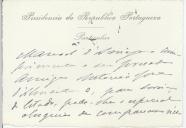 Presidencia da Republica Portugueza
Particular
Manuel d'Arriaga cum-
primenta o seu presado
Amigo Antonio José
d'Almeida e, para serviço
do Estado, pede-lhe o especial
obsequio de comparecer